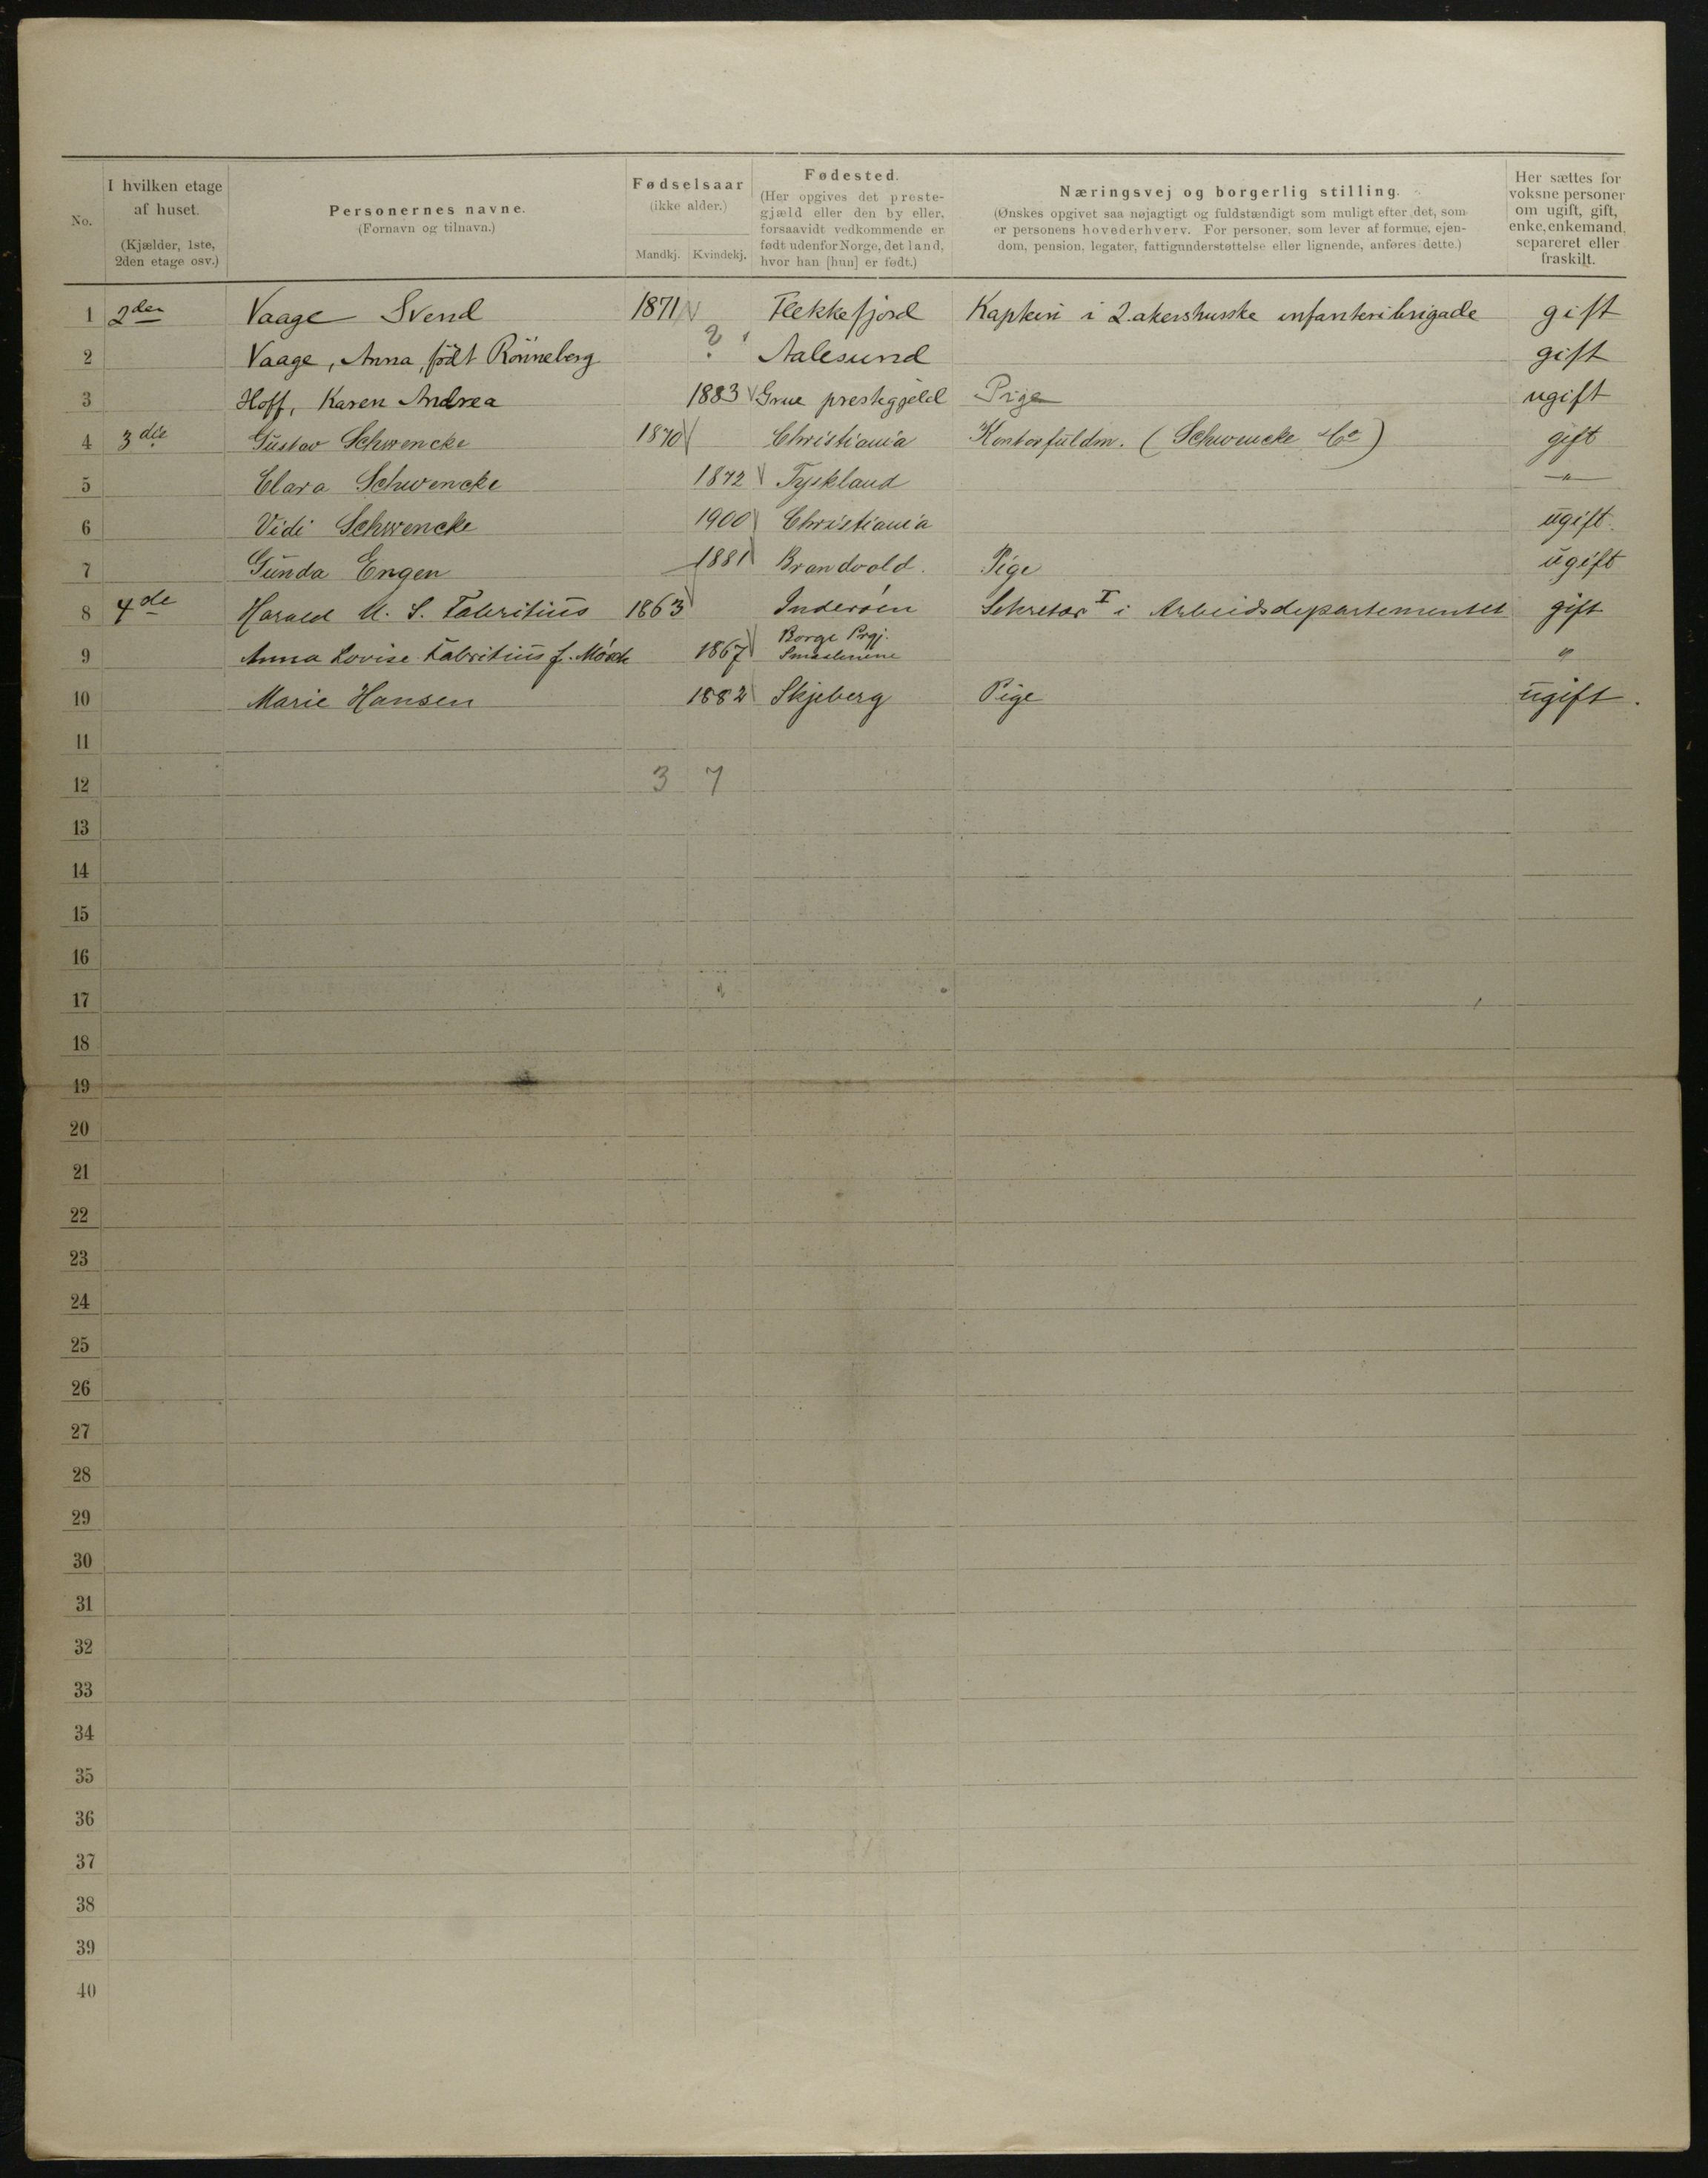 No.
I hvilken etage af huset. (Kjælder, 1ste, 2den etage osv.)
Personernes navne. (Fornavn og tilnavn.)
Fødselsaar (ikke alder.) Mandkj. Kvindekj.
Fødested. (Her opgives det prestegjæld eller den by eller, forsaavidt vedkommende er født udenfor Norge, det land, hvor han [hun] er født.)
Næringsvej og borgerlig stilling. (Ønskes opgivet saa nøjagtigt og fuldstændigt som muligt efter det, som er personens hovederhverv. For personer, som lever af formue, ejendom, pension, legater, fattigunderstøttelse eller lignende, anføres dette.)
Her sættes for voksne personer om ugift, gift, enke, enkemand, separeret eller fraskilt.
1 2den Vaage Svend 1871 Flekkefjord Kaptein i 2. akershusske infanteribrigade gift
2 Vaage, Anna, født Rönneberg ? Aalesund gift
3 Hoff, Karen Andrea 1883 Grue prestegjeld Pige ugift
4 3die Gustav Schwencke 1870 Christiania Kontorfuldm. (Schwencke & Co) gift
5 Clara Schwencke 1872 Tyskland — " —
6 Vidi Schwencke 1900 Christiania ugift.
7 Gunda Engen 1881 Brandvold. Pige ugift
8 4de Harald U. S. Fabritius 1863 Inderöen Sekretær I i Arbeidsdepartementet gift
9 Anna Lovise Fabritius f. 1867 Borge Prgj. Smaalenene "
10 Marie Hansen 1882 Skjeberg Pige ugift.
11
12 3 7
13
14
15
16
17
18
19
20
21
22
23
24
25
26
27
28
29
30
31
32
33
34
35
36
37
38
39
40